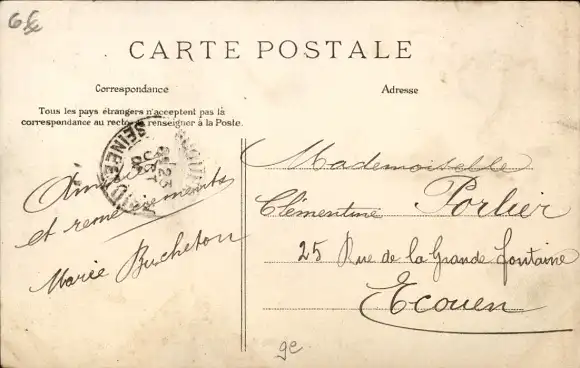 6f
CARTE POSTALE
Correspondance
Adresse
Tous les pays étrangers n'acceptent pas la
correspondance au recto renseigner à la Poste.
SEINE
23
Amitiés
et remerciements
Marie Bucheton
Mademoiselle
Clémentine Porlier
25 Rue de la Grande fontaine
Ecouen
ge